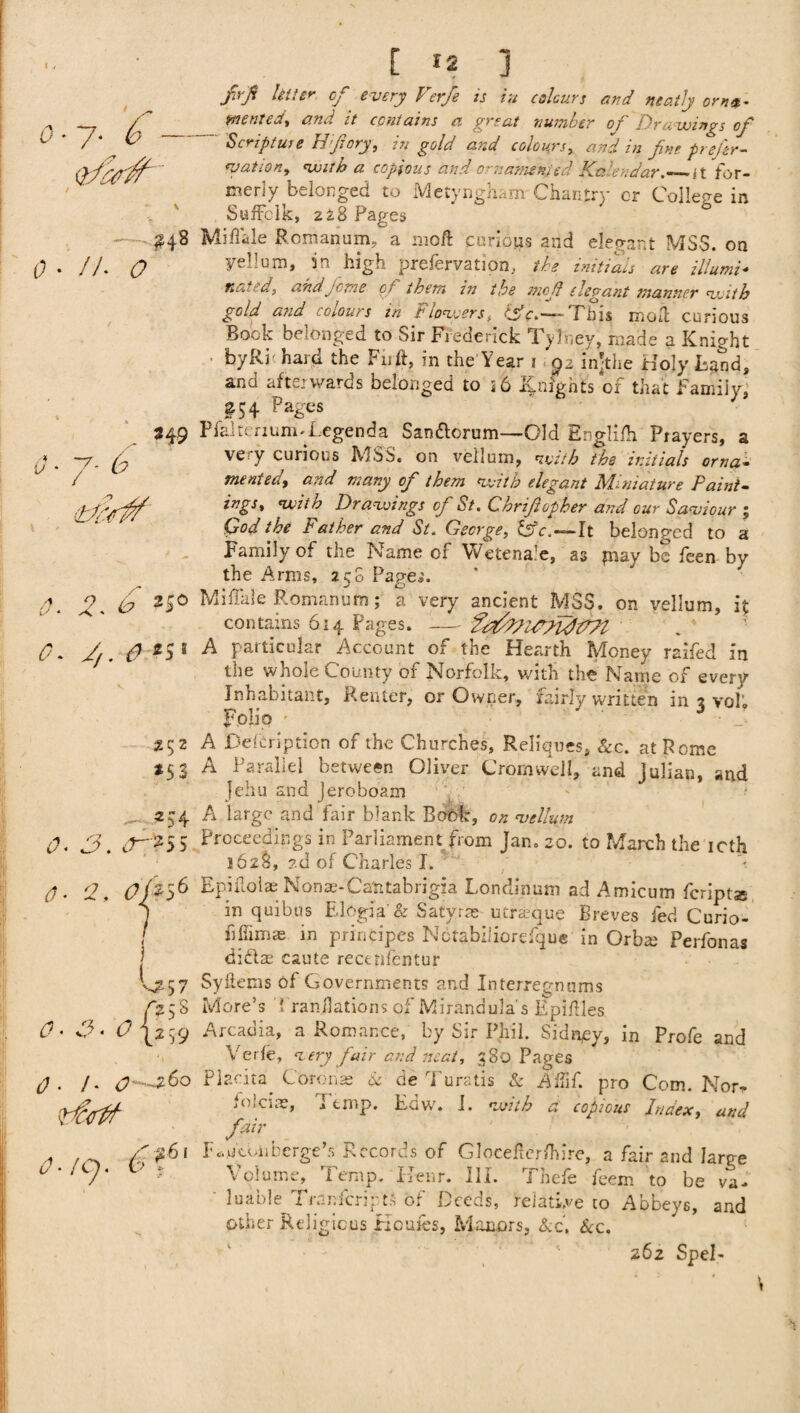 [ 12 ]
firſt letter of every Verſe is in colours and neatly orna-
mented, and it contains a great number of Drawings of
0 . 7 . 6 — Scripture Hiſtory, in gold and colours, and in fine preſer-
vation, with a copious and ornamented Kalendar.—it for-
merly belonged to Metyngham Chantry or College in
Suffolk, 228 Pages
0 . 11 . 0 — 248 Miſſale Romanum, a moſt curious and elegant MSS. on
vellum, in high preſervation, the initials are illumi-
nated, and ſome of them in the moſt elegant manner with
gold and colours in Flowers, &c.—This moſt curious
Book belonged to Sir Frederick Tylney, made a Knight
by Richard the Firſt, in the Year 1 92 in the Holy Land,
and afterwards belonged to 16 Knights of that Family,
254 Pages
0 . 7 . 6 249 Pſalterium-Legenda Sanctorum—Old Engliſh Prayers, a
very curious MSS. on vellum, with the initials orna-
mented, and many of them with elegant Miniature Paint-
ings, with Drawings of St. Chriſtopher and our Saviour ;
God the Father and St. George, &c.—It belonged to a
Family of the Name of Wetenale, as may be ſeen by
the Arms, 258 Pages.
0 . 2 . 6 250 Miſſale Romanum; a very ancient MSS. on vellum, it
contains 614 Pages. —
0 . 4 . 0 251 A particular Account of the Hearth Money raiſed in
the whole County of Norfolk, with the Name of every
Inhabitant, Renter, or Owner, fairly written in 3 vol.
Folio
252 A Deſcription of the Churches, Reliques, &c. at Rome
253 A Parallel between Oliver Cromwell, and Julian, and
Jehu and Jeroboam
254 A large and fair blank Book, on vellum
0 . 3 . 0 255 Proceedings in Parliament from Jan. 20. to March the 10th
1628, 2d of Charles I.
0 . 2 . 0 256 Epiſtolæ Nonæ-Cantabrigia Londinum ad Amicum ſcriptæ
in quibus Elogia & Satyræ utræque Breves ſed Curio-
ſiſſimæ in principes Notabilioreſque in Orbæ Perſonas
dictæ caute recenſentur
257 Syſtems of Governments and Interregnums
258 More's Tranſlations of Mirandula's Epiſtles
0 . 3 . 0 259 Arcadia, a Romance, by Sir Phil. Sidney, in Proſe and
Verſe, very fair and neat, 380 Pages
0 . 1 . 0 — 260 Placita Coronæ & de Juratis & Aſſiſ. pro Com. Nor-
folciæ, Temp. Edw. I. with a copious Index, and
fair
0 . 19 . 6 261 Fauconberge's Records of Gloceſterſhire, a fair and large
Volume, Temp. Henr. III. Theſe ſeem to be va-
luable Tranſcripts of Deeds, relative to Abbeys, and
other Religious Houſes, Manors, &c. &c.
262 Spel-